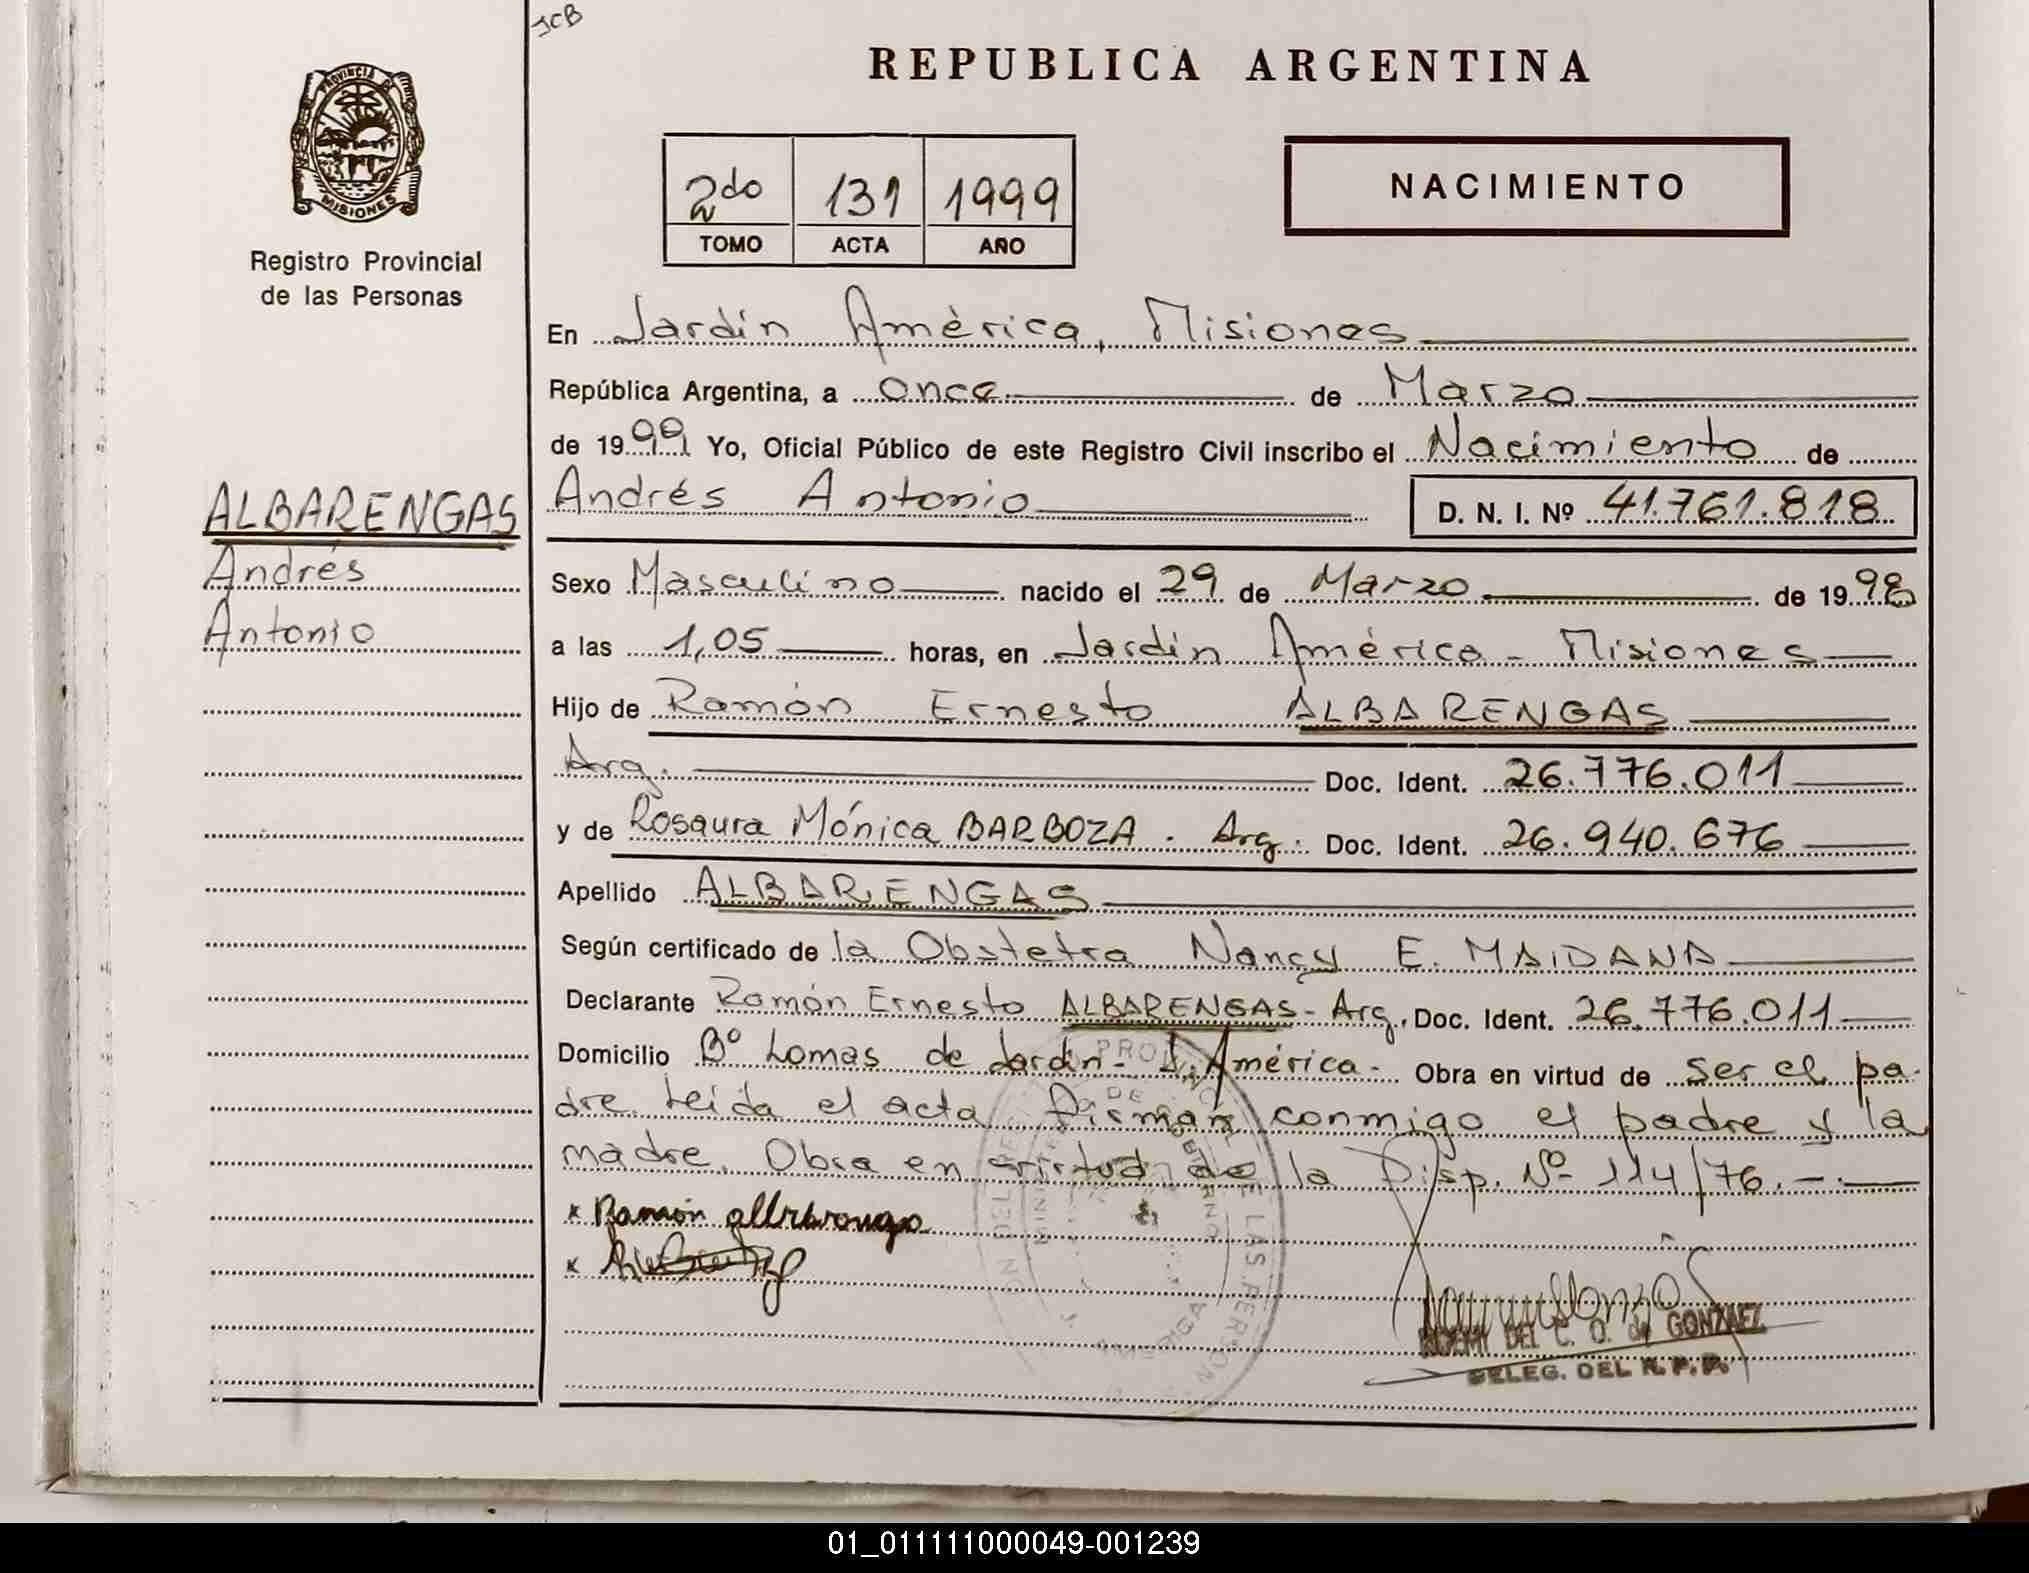 JCB
REPUBLICA ARGENTINA
PROVINCIA DE
MISIONES
Registro Provincial
de las Personas
2do 131 1999
TOMO ACTA AÑO
NACIMIENTO
En Jardín América, Misiones
República Argentina, a once de Marzo
de 1999 Yo, Oficial Público de este Registro Civil inscribo el Nacimiento de
ALBARENGAS
Andrés
Antonio
Andrés Antonio D. N. I. Nº 41.761.818
Sexo Masculino nacido el 29 de Marzo de 1998
a las 1,05 horas, en Jardín América - Misiones
Hijo de Ramón Ernesto ALBARENGAS
Arg. Doc. Ident. 26.776.011
y de Rosaura Mónica BARBOZA. Arg. Doc. Ident. 26.940.676
Apellido ALBARENGAS
Según certificado de la Obstetra Nancy E. MAIDANA
Declarante Ramón Ernesto ALBARENGAS - Arg. Doc. Ident. 26.776.011
Domicilio Bº Lomas de Jardín - J. América - Obra en virtud de ser el pa-
dre. Leída el acta firman conmigo el padre y la
madre. Obra en virtud de la Disp. Nº 114/76.-.
x Ramón
x
NOEMI DEL C. O. de GONZALEZ
DELEG. DEL R. P. P.
01_011111000049-001239